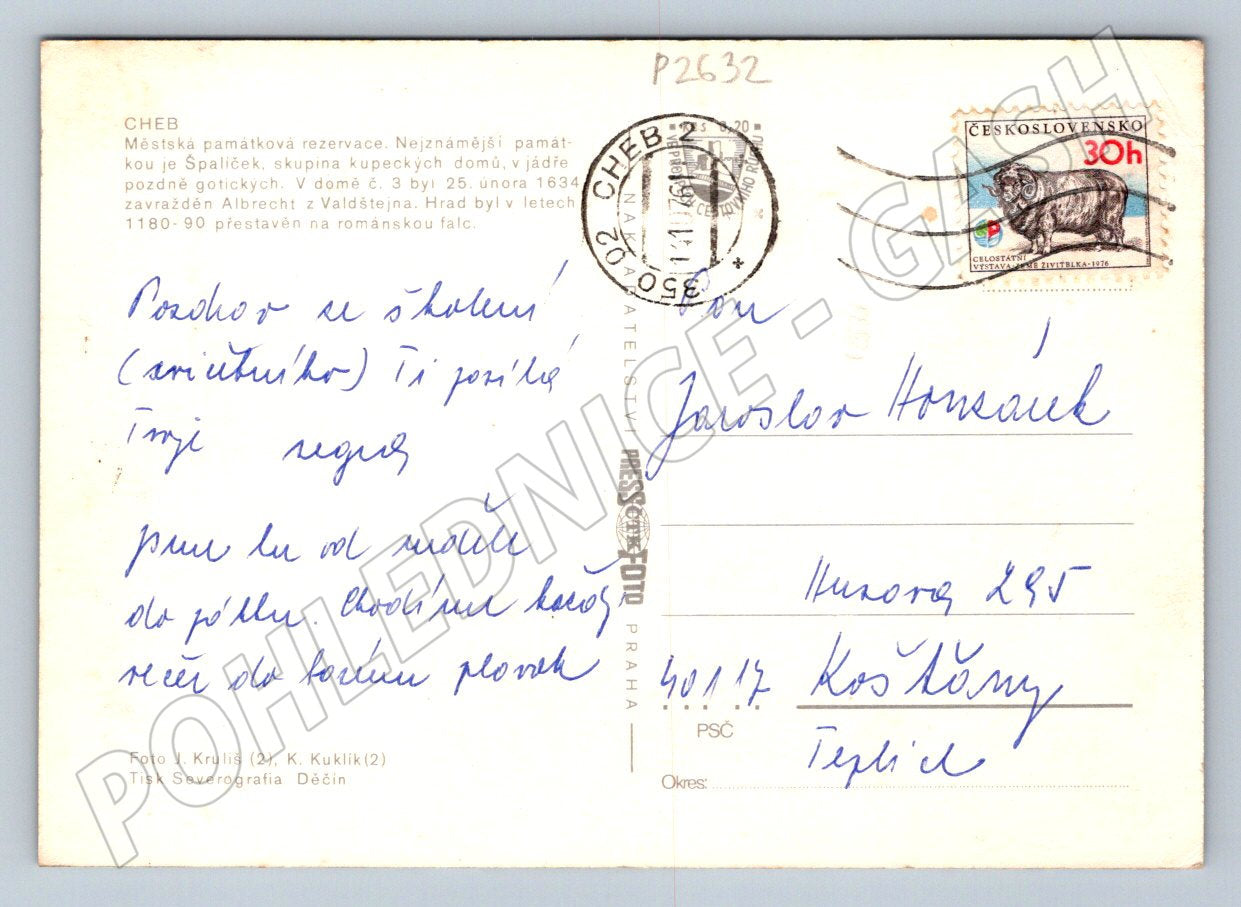 P2632
CHEB
Městská památková rezervace. Nejznámější památ-
kou je Špalíček, skupina kupeckých domů, v jádře
pozdně gotických. V domě č. 3 byl 25. února 1634
zavražděn Albrecht z Valdštejna. Hrad byl v letech
1180-90 přestavěn na románskou falc.
350 02 CHEB 2
Kčs 0,20
ČESKOSLOVENSKO
30h
CELOSTÁTNÍ
VÝSTAVA ZEMĚ ŽIVITELKA · 1976
Pozdrav ze školení
Ti posílá
Tvoje segra
jsme tu od neděle
do pátku. Chodíme každý
večer do bazénu plavat
Pan
Jaroslav Honzárek
Husova 295
40117 Košťany
PSČ
Teplice
Okres:
NAKLADATELSTVÍ PRESSFOTO PRAHA
ČTK
Foto J. Kruliš (2), K. Kuklík (2)
Tisk Severografia Děčín
POHLEDNICE - GASH